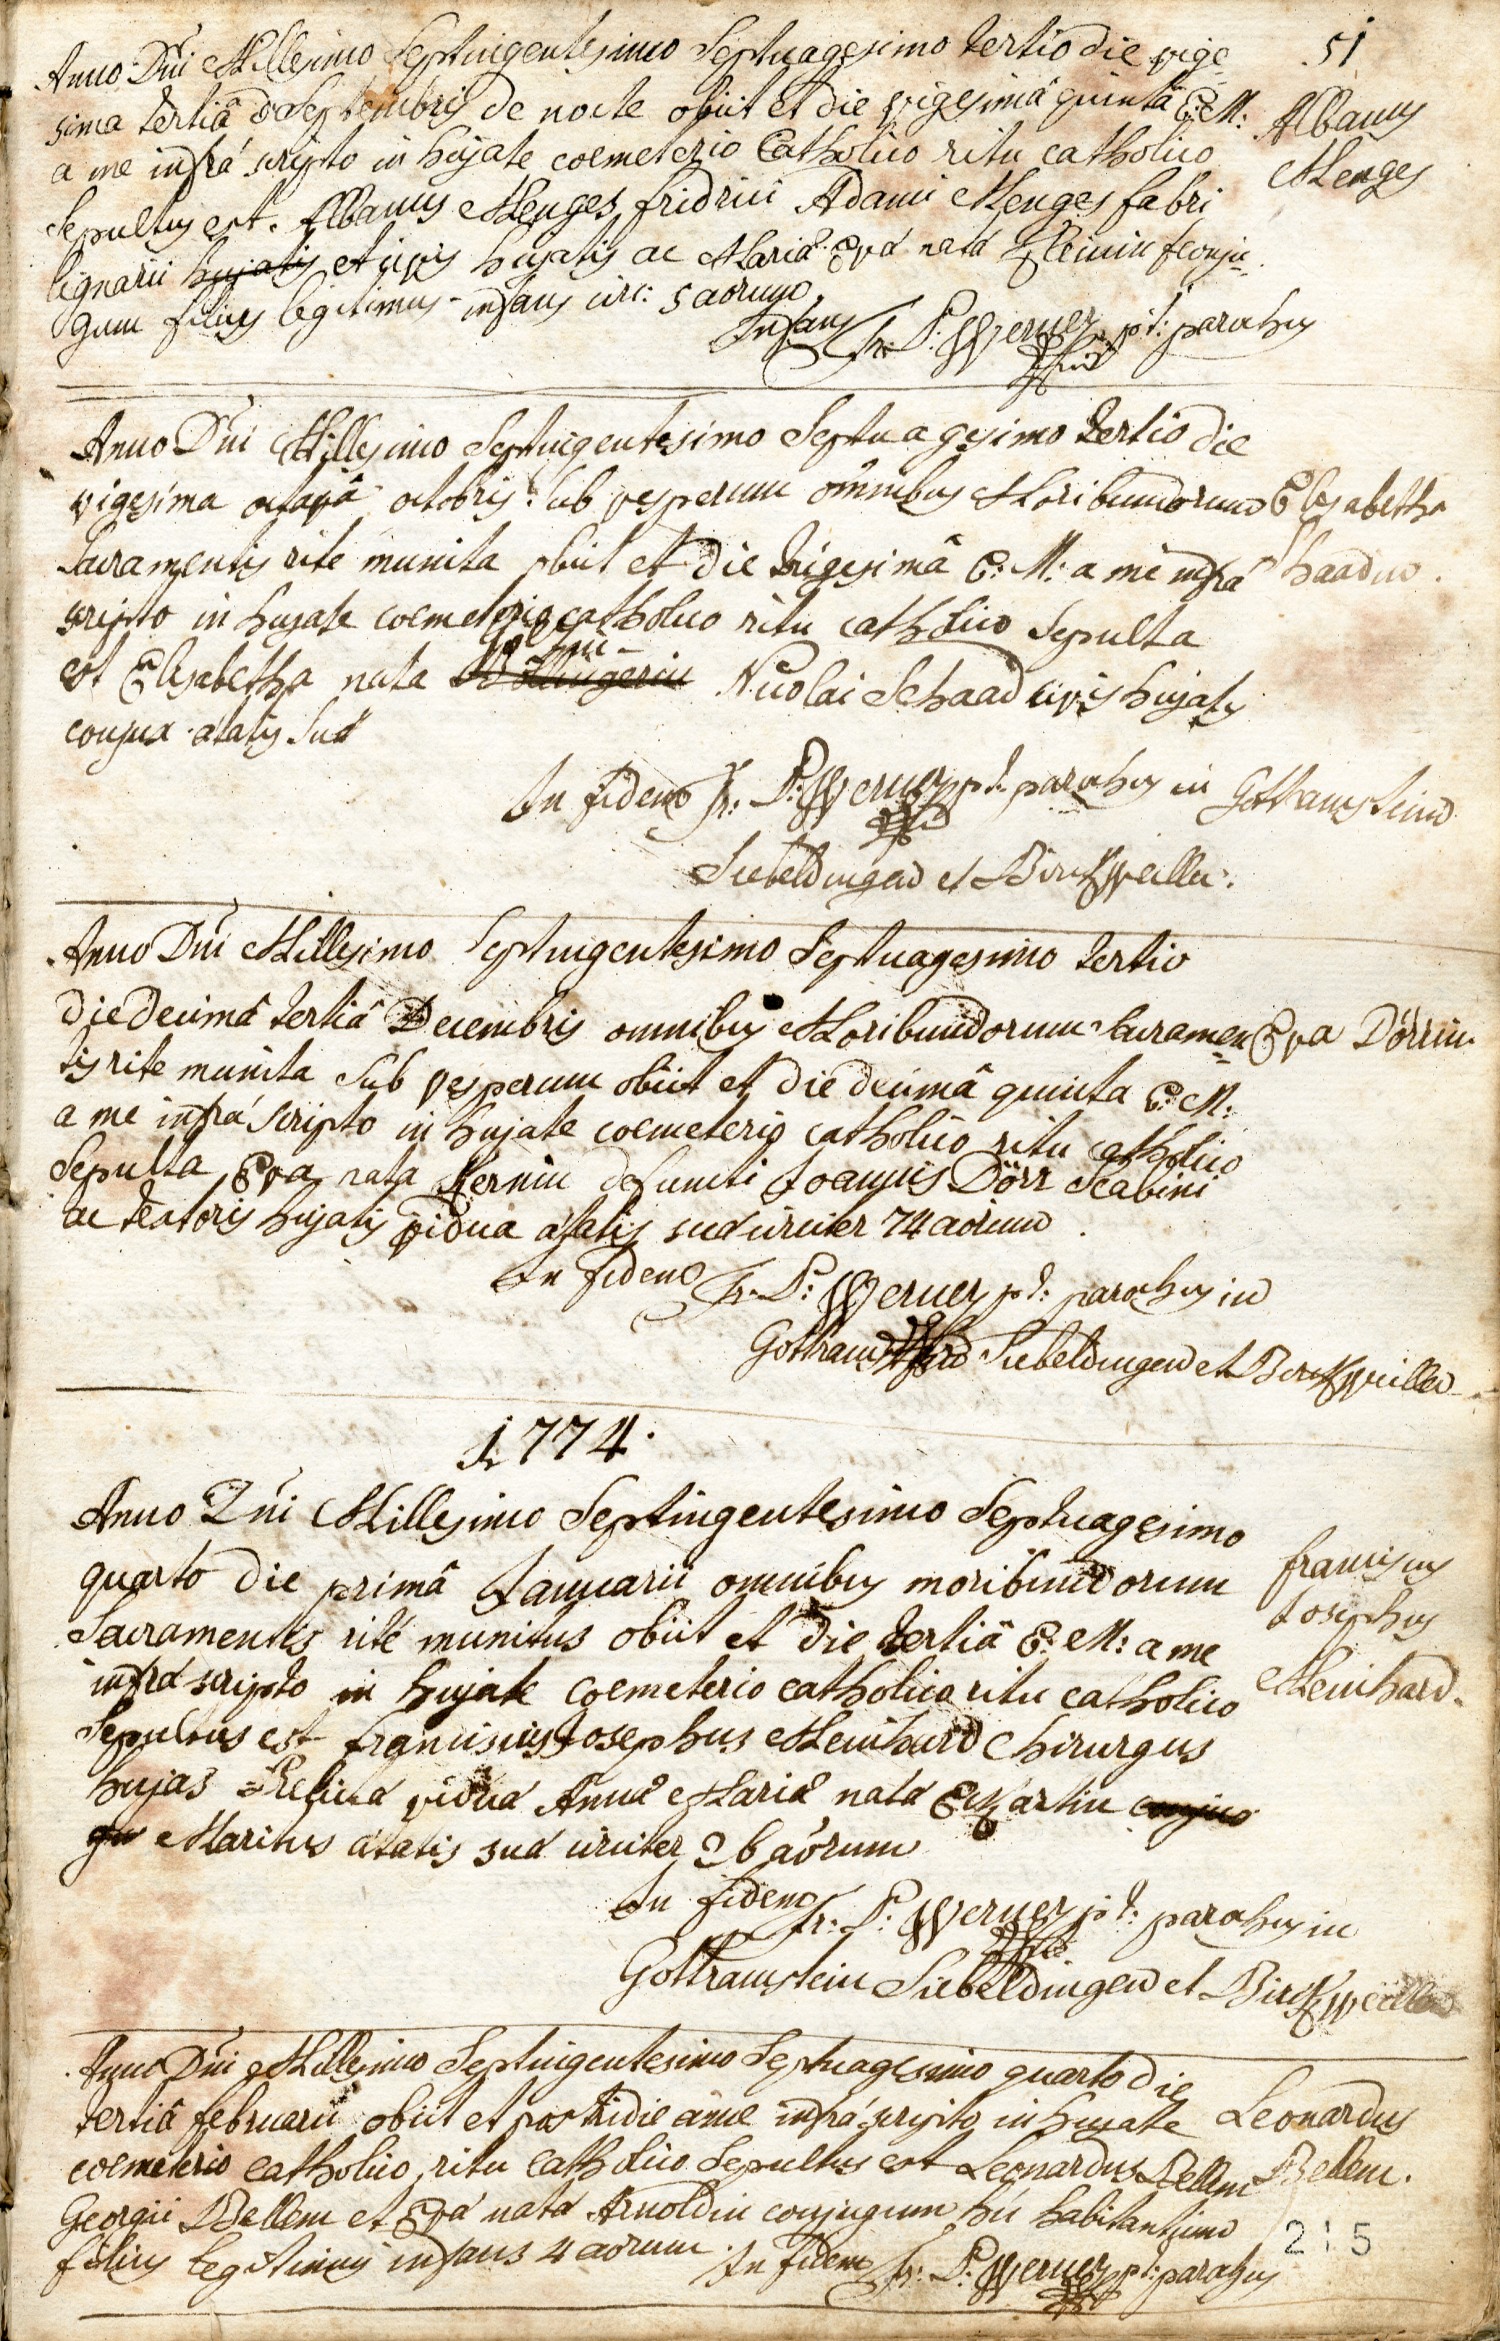 51
Anno Dñi Millesimo Septuigentesimo Septuagesimo tertio die vige=
sima tertiâ Septembris de nocte obiit et die vigesimâ quintâ E: M:
a me infrá scripto in hujate coemeterio Catholico ritu catholico
Sepultus est. Albanus Menges fridrici Adami Menges fabri
lignarii hujatis et civis hujatis ac Maria Eva nata conju=
gum filius legitimus infans circ: 5 aorum
Albanus
Menges
In fidem Fr: P: Werner p:t: parochus
Anno Dñi Millesimo Septuigentesimo Septuagesimo tertio die
vigesima octavâ octobris sub vesperum omnibus Moribundorum
Sacramentis rite munita obiit et die trigesimâ E: M: a me infrá
scripto in hujate coemeterio catholico ritu catholico Sepulta
est Elisabetha nata Nicolai Schaad civis hujatis
conjux aetatis suae
Elisabetha
Schaadin.
In fidem Fr: P: Werner p:t: parochus in Gottramstein
Siebeldingen et Birckweiller.
Anno Dñi Millesimo Septuigentesimo Septuagesimo tertio
die decimâ tertiâ Decembris omnibus Moribundorum Sacramen=
tis rite munita sub vesperum obiit et die decimâ quinta E: M:
a me infrá scripto in hujate coemeterio catholico ritu catholico
Sepulta Eva nata Kernin defuncti Joannis Dörr Scabini
ac textoris hujatis vidua aetatis suae circiter 74 aorum.
Eva Dörrin.
In fidem Fr: P: Werner p:t: parochus in
Gottramstein Siebeldingen et Birckweiller
1774.
Anno Dñi Millesimo Septingentesimo Septuagesimo
quarto die primâ Januarii omnibus moribundorum
Sacramentis rité munitus obiit et die tertiâ E: M: a me
infrá scripto in hujate coemeterio catholico ritu catholico
Sepultus est franciscus Josephus Meinhard Chirurgus
hujas Relicta vidua Anna Maria nata Eckartin
Maritus aetatis suae circiter aorum
franciscus
Josephus
Meinhard.
In fidem Fr: P: Werner p:t: parochus in
Gottramstein Siebeldingen et Birckweiller
Anno Dñi Millesimo Septuigentesimo Septuagesimo quarto die
tertiâ februarii obiit et postridie a me infrá scripto in hujate
coemeterio catholico ritu catholico Sepultus est Leonardus Bellem
Georgii Bellem et Eva nata Arnoldin conjugum hic habitantium
filius legitimus infans 4 aorum.
Leonardus
Bellem.
In fidem Fr: P: Werner p:t: parochus
215